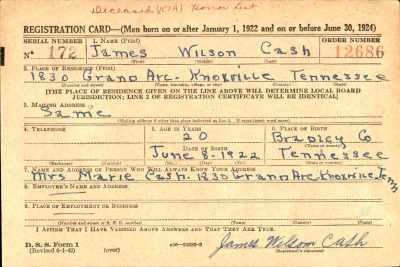 Deceased (KIA) Honor List
REGISTRATION CARD—(Men born on or after January 1, 1922 and on or before June 30, 1924)
SERIAL NUMBER 1. NAME (Print) ORDER NUMBER
N° 172 James Wilson Cash 12686
(First) (Middle) (Last)
2. PLACE OF RESIDENCE (Print)
1830 Grand Ave. Knoxville Tennessee
(Number and street) (Town, township, village, or city) (County) (State)
[THE PLACE OF RESIDENCE GIVEN ON THE LINE ABOVE WILL DETERMINE LOCAL BOARD
JURISDICTION; LINE 2 OF REGISTRATION CERTIFICATE WILL BE IDENTICAL]
3. MAILING ADDRESS
Same
[Mailing address if other than place indicated on line 2. If same insert word same]
4. TELEPHONE 5. AGE IN YEARS 6. PLACE OF BIRTH
20 Bradley Co
DATE OF BIRTH (Town or county)
June 8-1922 Tennessee
(Exchange) (Number) (Mo.) (Day) (Yr.) (State or country)
7. NAME AND ADDRESS OF PERSON WHO WILL ALWAYS KNOW YOUR ADDRESS
Mrs Marie Cash-1830 Grand Ave Knoxville, Tenn
8. EMPLOYER'S NAME AND ADDRESS
9. PLACE OF EMPLOYMENT OR BUSINESS
(Number and street or R. F. D. number) (Town) (County) (State)
I AFFIRM THAT I HAVE VERIFIED ABOVE ANSWERS AND THAT THEY ARE TRUE.
D. S. S. Form 1
(Revised 6-1-42) (over) James Wilson Cash
(Registrant's signature)